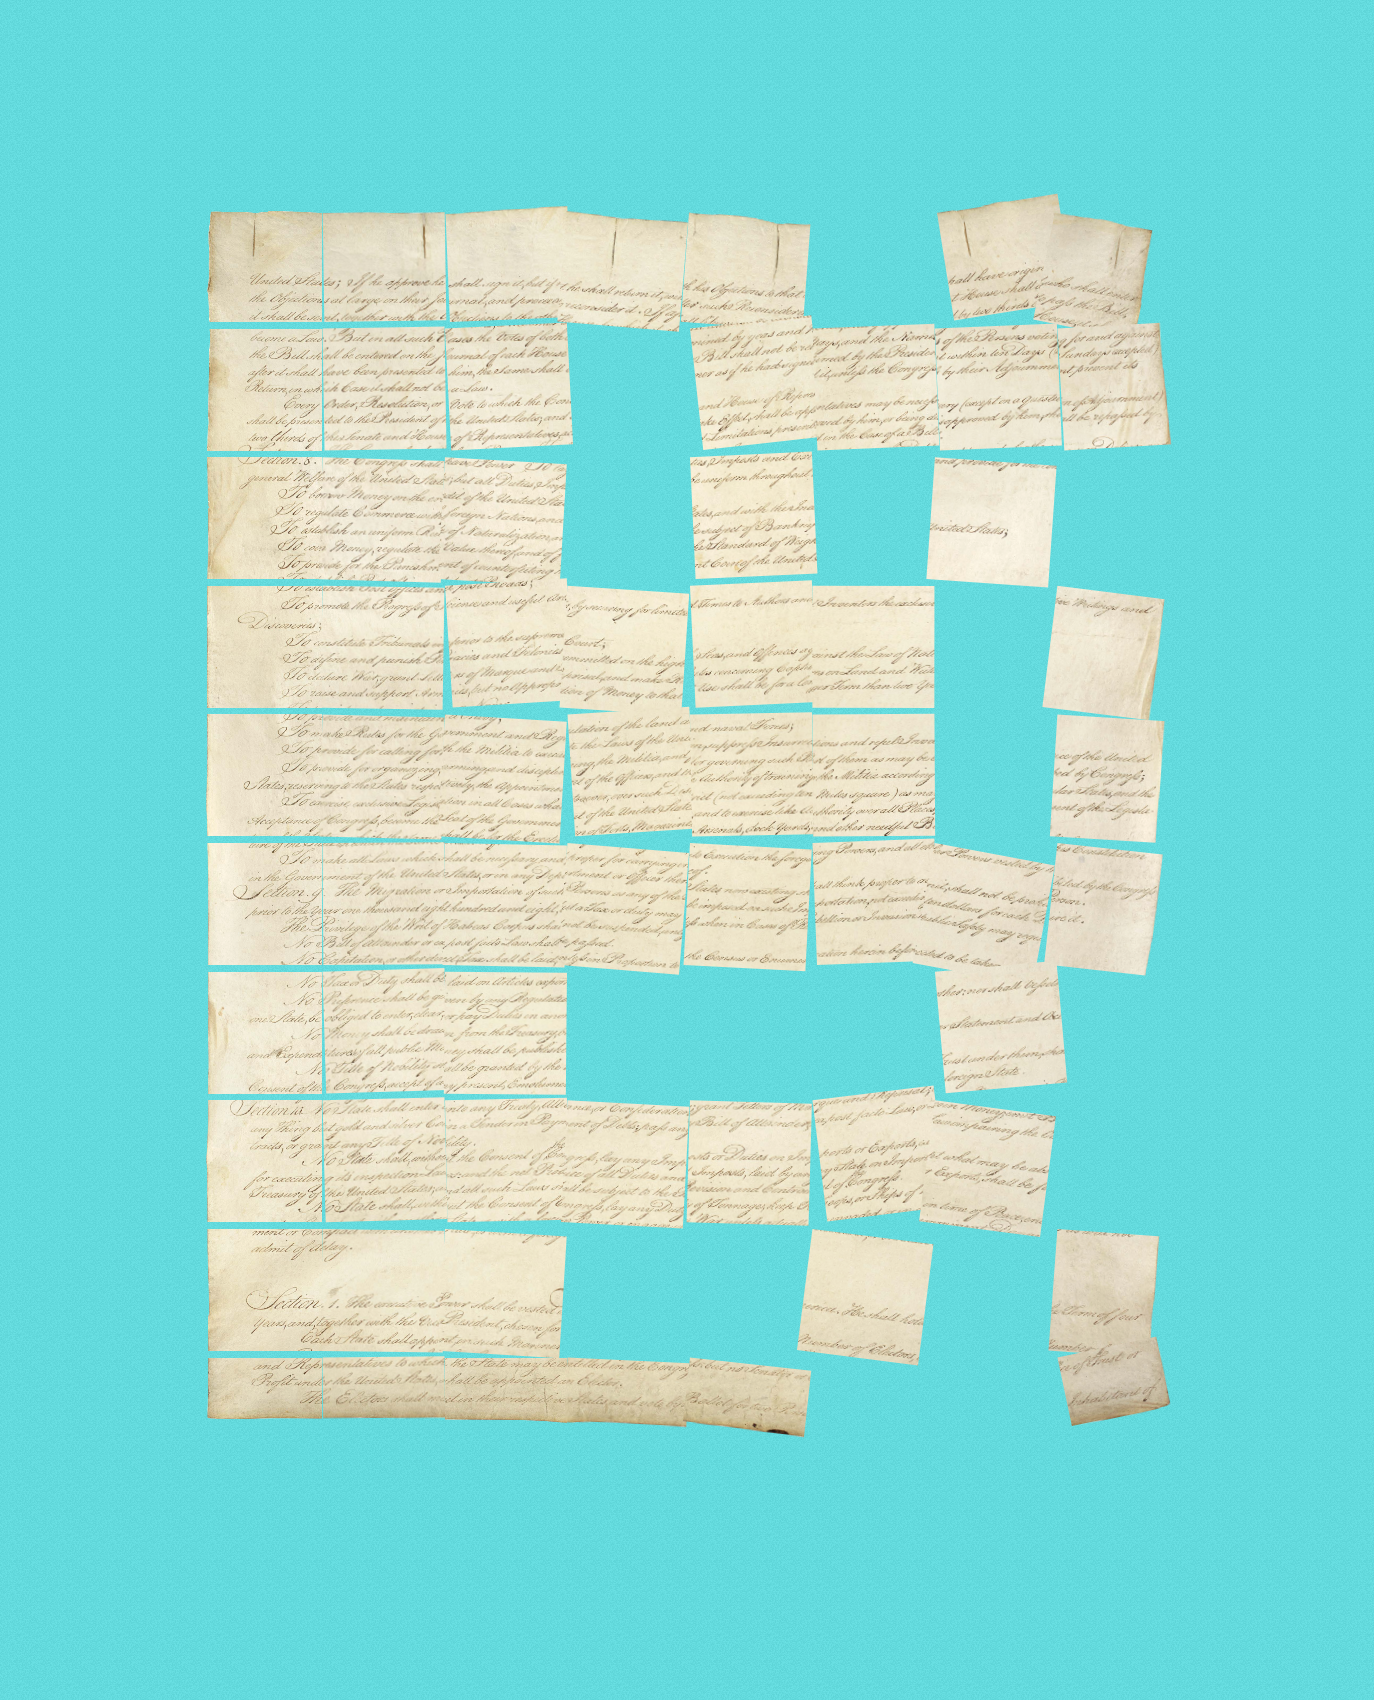 United States; If he approve he shall sign it, but if he shall return it, h his Objections to that shall have origin
the Objections at large on their Journal, and proceed reconsider it. If after such Reconsidera t House shall
it shall be sent, together with the Objections, to the other by two thirds pass the Bill,
become a Law. But in all such Cases the Votes of both mined by yeas and Nays, and the Names of the Persons voting for and against
the Bill shall be entered on the Journal of each House Bill shall not be re ned by the Presiden t within ten Days ( Sundays excepted )
after it shall have been presented to him, the Same shall ner as if he had signed it, unless the Congress by their Adjournment prevent its
Return, in which Case it shall not be a Law.
Every Order, Resolution, or Vote to which the Con and House of Repres entatives may be necess ary (except on a question of Adjournment)
shall be presented to the President of the United States; and ke Effect, shall be app roved by him, or being dis approved by him, sha ll be repassed by
two thirds of the Senate and House of Representatives, Limitations prescri d in the Case of a Bill.
Section. 8. The Congress shall have Power To ses, Imposts and Exc and provide for
general Welfare of the United States; but all Duties, Imp be uniform throughout United States;
To borrow Money on the credit of the United Sta
To regulate Commerce with foreign Nations, and tates, and with the Ind
To establish an uniform Rule of Naturalization, subject of Bankru
To coin Money, regulate the Value thereof, and of Standard of Weigh
To provide for the Punishment of counterfeiting nt Coin of the United
To establish Post Offices and post Roads;
To promote the Progress of Science and useful Arts, by securing for limited Times to Authors and Inventors the exclus ive Writings and
Discoveries;
To constitute Tribunals inferior to the supreme Court;
To define and punish Piracies and Felonies committed on the high Seas, and Offences against the Law of Nati
To declare War, grant Letters of Marque and Reprisal, and make Rules concerning Captures on Land and Wat
To raise and support Armies, but no Appropriation of Money to that Use shall be for a longer Term than two Ye
To provide and maintain a Navy;
To make Rules for the Government and Regulation of the land and naval Forces;
To provide for calling forth the Militia to execute the Laws of the Union, suppress Insurrections and repel Invas
To provide for organizing, arming, and disciplining, the Militia, and for governing such Part of them as may be ice of the United
States, reserving to the States respectively, the Appointment of the Officers, and the Authority of training the Militia according ed by Congress;
To exercise exclusive Legislation in all Cases whatsoever, over such Dist rict (not exceeding ten Miles square) as may lar States, and the
Acceptance of Congress, become the Seat of the Government of the United States, and to exercise like Authority over all Places ment of the Legisla
ture of the State in which the Same shall be, for the Erection of Forts, Magazines, Arsenals, dock-Yards, and other needful B
To make all Laws which shall be necessary and proper for carrying into Execution the foregoing Powers, and all other Powers vested by this Constitution
in the Government of the United States, or in any Department or Officer thereof.
Section. 9. The Migration or Importation of such Persons as any of the States now existing shall think proper to admit, shall not be prohibited by the Congress
prior to the Year one thousand eight hundred and eight, but a Tax or duty may be imposed on such Importation, not exceeding ten dollars for each Person.
The Privilege of the Writ of Habeas Corpus shall not be suspended, unless when in Cases of Rebellion or Invasion the public Safety may require it.
No Bill of Attainder or ex post facto Law shall be passed.
No Capitation, or other direct, Tax shall be laid, unless in Proportion to the Census or Enumeration herein before directed to be taken
No Tax or Duty shall be laid on Articles expor
No Preference shall be given by any Regulation ther: nor shall Vessels
one State, be obliged to enter, clear, or pay Duties in ano
No Money shall be drawn from the Treasury, r Statement and Acc
and Expenditures of all public Money shall be publishe
No Title of Nobility shall be granted by the Trust under them, sha
Consent of the Congress, accept of any present, Emolument foreign State.
Section. 10. No State shall enter into any Treaty, Alliance, or Confederation; grant Letters of Mar que and Reprisal;
any Thing but gold and silver Coin a Tender in Payment of Debts; pass any Bill of Attainder, ex post facto Law, or Law impairing the O
tracts, or grant any Title of Nobility.
No State shall, without the Consent of the Congress, lay any Imposts or Duties on Imports or Exports, except what may be abs
for executing it's inspection Laws: and the net Produce of all Duties and Imposts, laid by any State on Imports or Exports, shall be f
Treasury of the United States; and all such Laws shall be subject to the Revision and Controul of the Congress.
No State shall, without the Consent of Congress, lay any Duty of Tonnage, keep Troops, or Ships of War in time of Peace, en
ment or Compact
admit of delay.
Section. 1. The executive Power shall be vested erica. He shall hold the Term of four
Years, and, together with the Vice President, chosen for
Each State shall appoint, in such Manner Number of Electors, Number of
and Representatives to which the State may be entitled in the Congress: but no Senator or n of Trust or
Profit under the United States, shall be appointed an Elector.
The Electors shall meet in their respective States, and vote by Ballot for two Inhabitant of